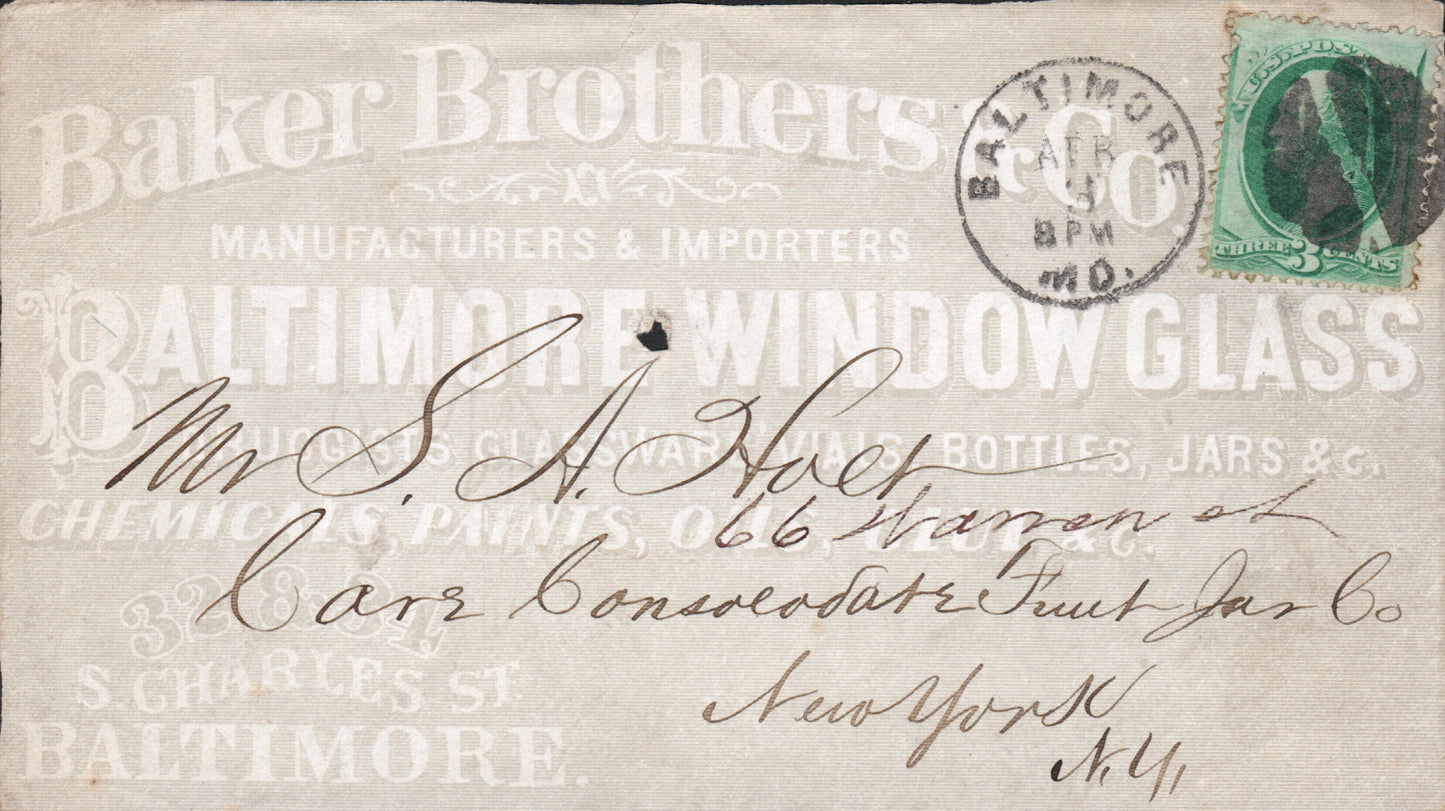 Baker Brothers & Co.
MANUFACTURERS & IMPORTERS
BALTIMORE WINDOW GLASS
DRUGGISTS GLASSWARE VIALS, BOTTLES, JARS &C.
CHEMICALS, PAINTS, OILS, GLUE &C.
32 & 34
S. CHARLES ST.
BALTIMORE.
BALTIMORE
APR
3
8 PM
MD.
U.S. POSTAGE
THREE 3 CENTS
Mr S. A. Holt
66 Warren st
Care Consolodate Fruit Jar Co
New York
N.Y.